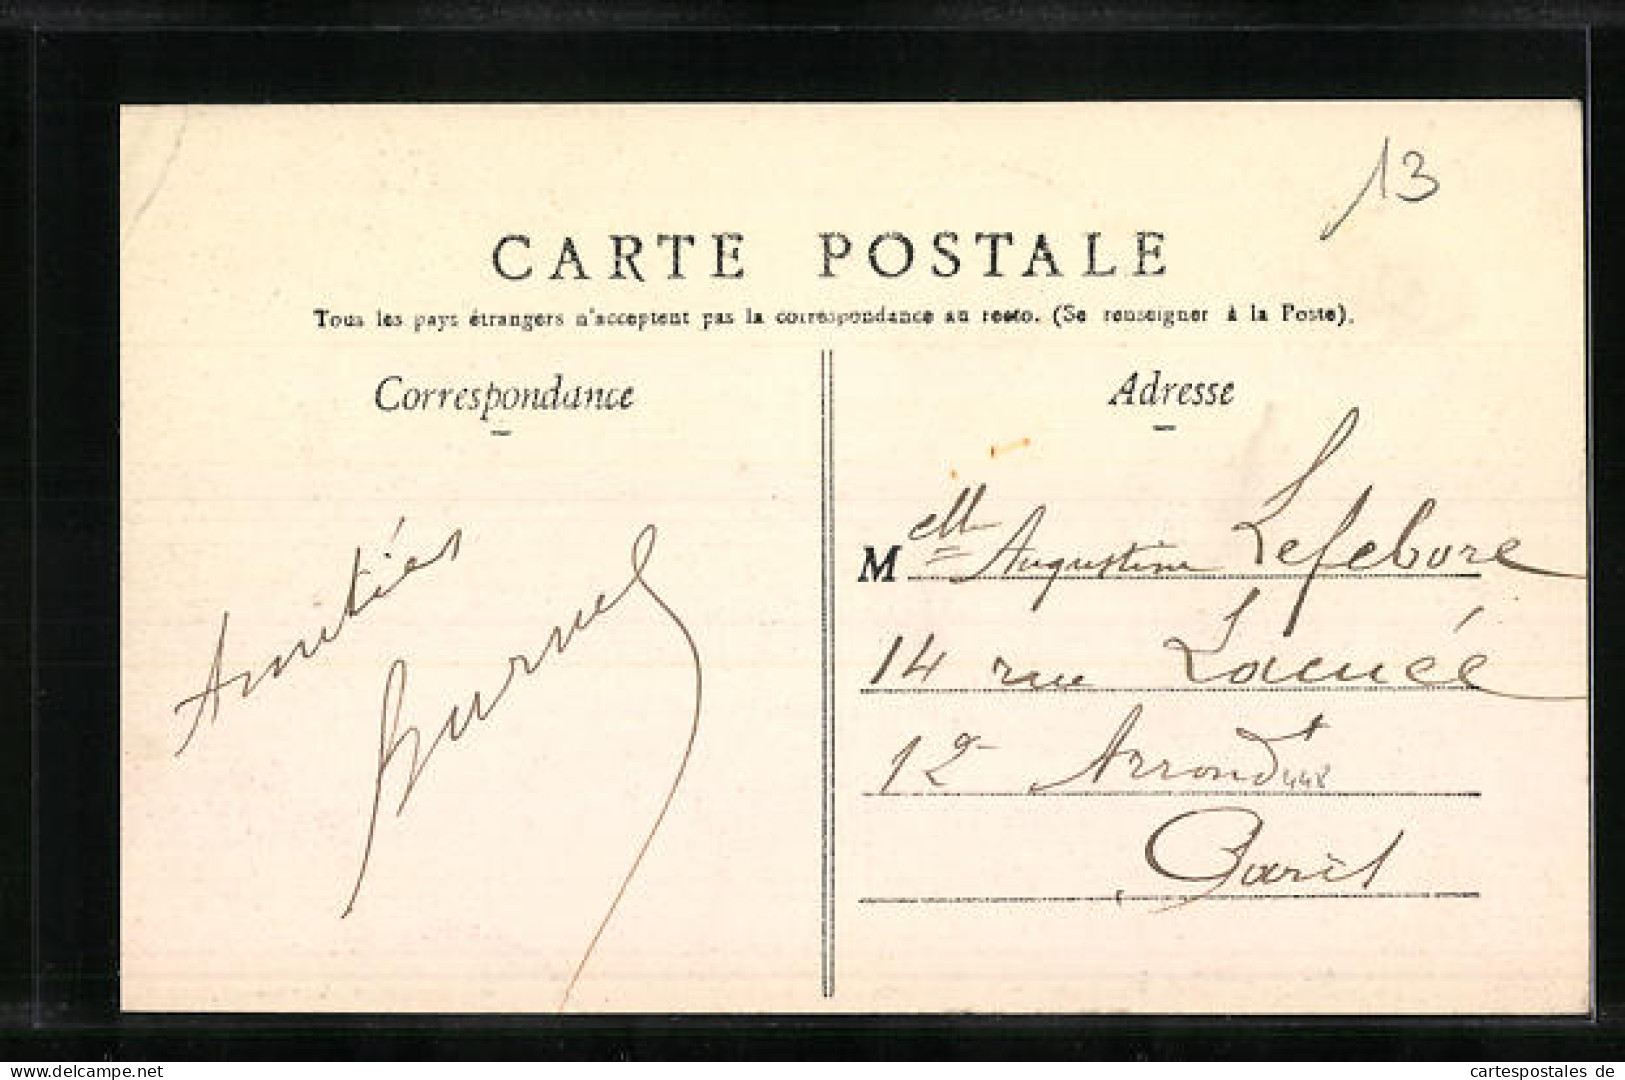 13
CARTE POSTALE
Tous les pays étrangers n'acceptent pas la correspondance au recto. (Se renseigner à la Poste).
Correspondance
Adresse
Amitiés
M elle Augustine Lefebvre
14 rue Lacuée
12e Arrondt
448
Paris
www.delcampe.net
cartespostales de